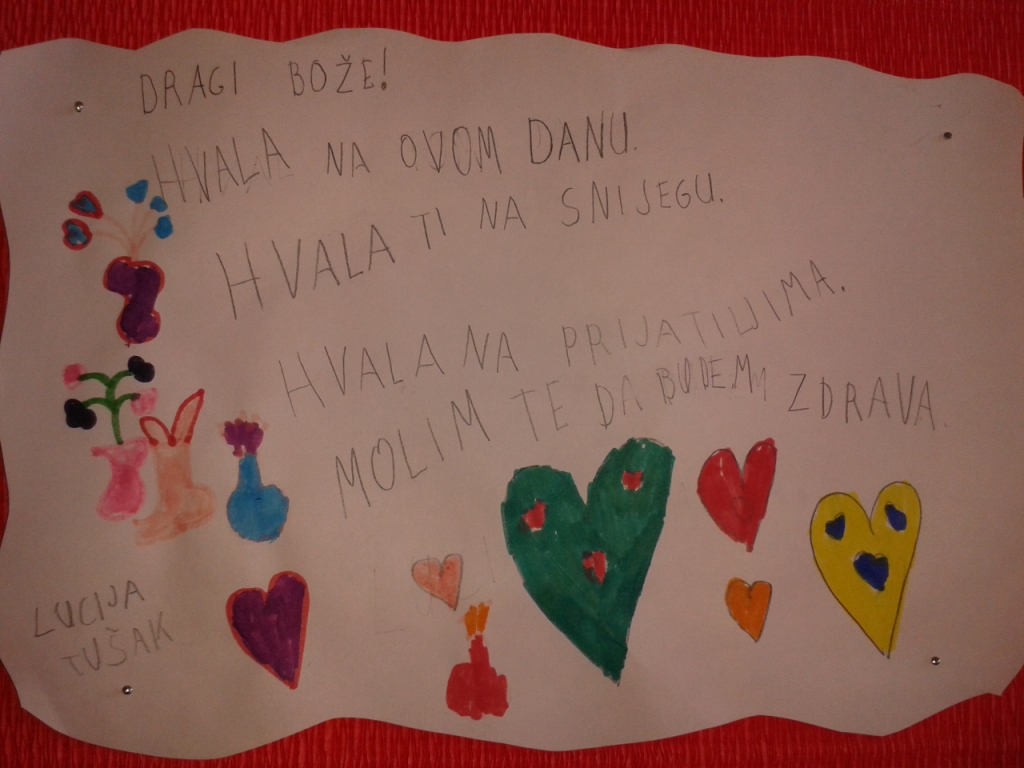 DRAGI BOŽE!
HVALA NA OVOM DANU.
HVALA TI NA SNIJEGU.
HVALA NA PRIJATILJIMA.
MOLIM TE DA BUDEM ZDRAVA.
LUCIJA
TUŠAK